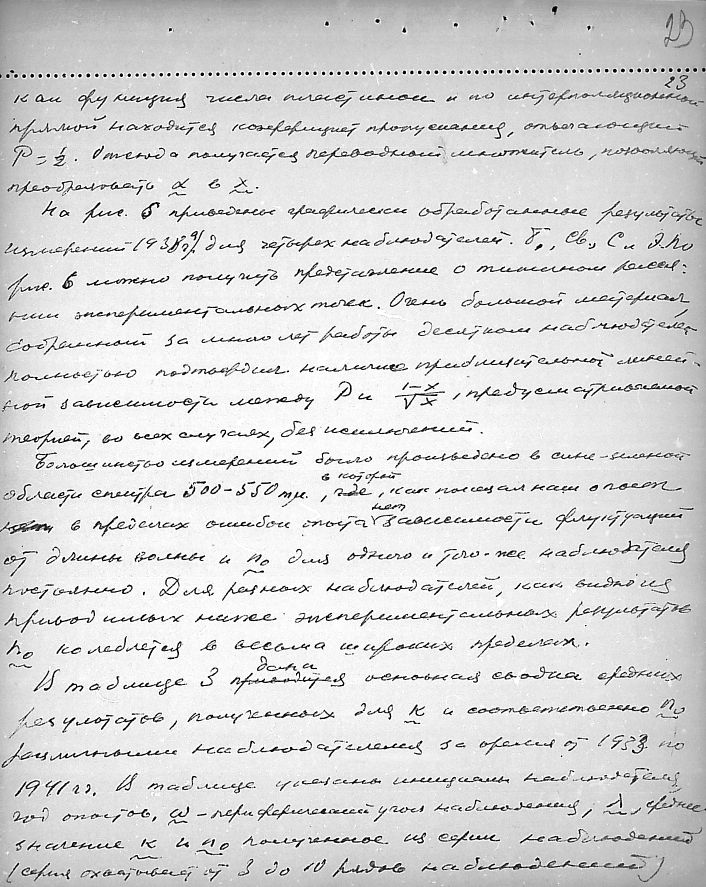 23
23
как функция числа пластинок и по интерполяционной
прямой находится коэффициент пропускания, отвечающий
P = 1/2. Отсюда получается переводный множитель, позволяющий
преобразовать α в x.
На рис. 6 приведены графически обработанные результаты
измерений 1938 г. для четырех наблюдателей. Т., Св., С. и Э. По
рис. 6 можно получить представление о типичном рассея-
нии экспериментальных точек. Очень большой материал,
собранный за много лет работы десятком наблюдателей
полностью подтвердил наличие приблизительной линей-
ной зависимости между P и 1-x/√x, предусматриваемой
теорией, во всех случаях, без исключений.
Большинство измерений было произведено в сине-зеленой
области спектра 500-550 mμ, в которой, как показал наш опыт
в пределах ошибок опыта нет зависимости флуктуаций
от длины волны и n₀ для одного и того-же наблюдателя
постоянно. Для разных наблюдателей, как видно из
приводимых ниже экспериментальных результатов
n₀ колеблется в весьма широких пределах.
В таблице 3 дана основная сводка средних
результатов, полученных для k и соответственно n₀
различными наблюдателями за время от 1933 по
1941 гг. В таблице указаны инициалы наблюдателя,
год опытов, ω - периферический угол наблюдения, λ, среднее
значение k и n₀ полученное из серии наблюдений
(серия охватывает от 3 до 10 рядов наблюдений)